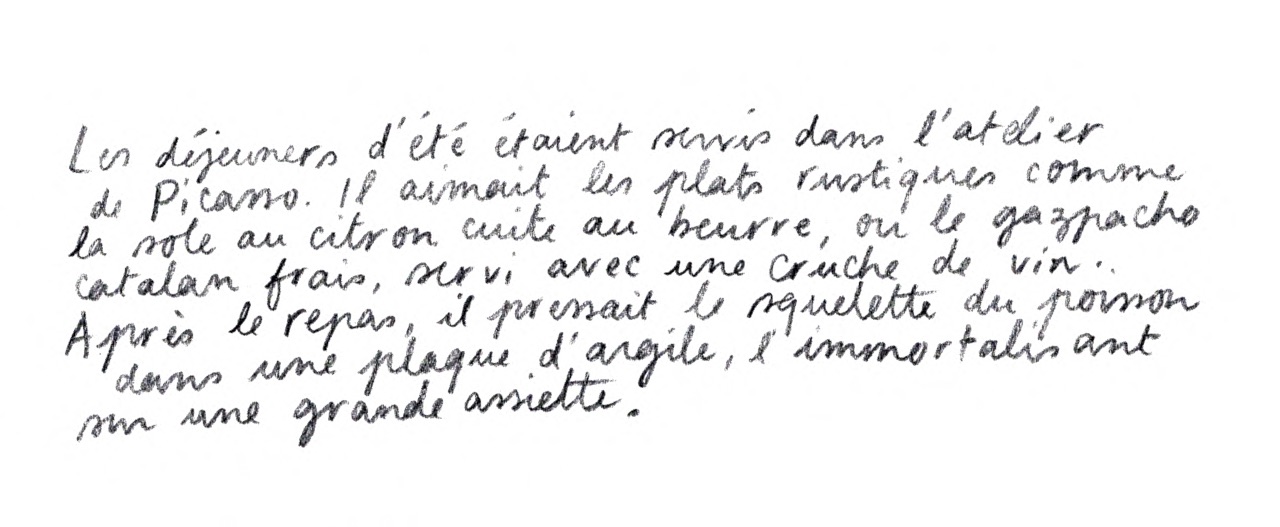 Les déjeuners d'été étaient servis dans l'atelier
de Picasso. Il aimait les plats rustiques comme
la sole au citron cuite au beurre, ou le gazpacho
catalan frais, servi avec une cruche de vin.
Après le repas, il pressait le squelette du poisson
dans une plaque d'argile, l'immortalisant
sur une grande assiette.